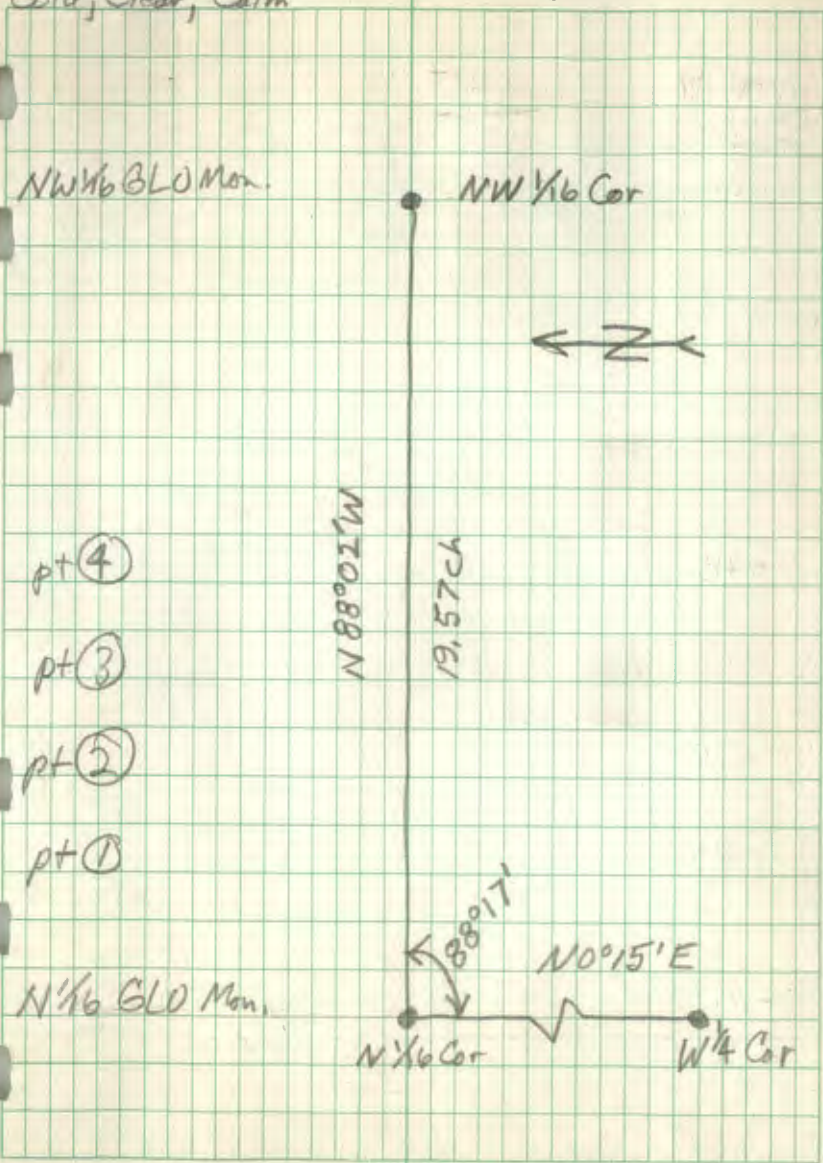 Cold, Clear, Calm
NW 1/16 GLO Mon.
NW 1/16 Cor
N
N 88°02'W
19.57ch
pt ④
pt ③
pt ②
pt ①
88°17'
N0°15'E
N 1/16 GLO Mon.
N 1/16 Cor
W 1/4 Cor